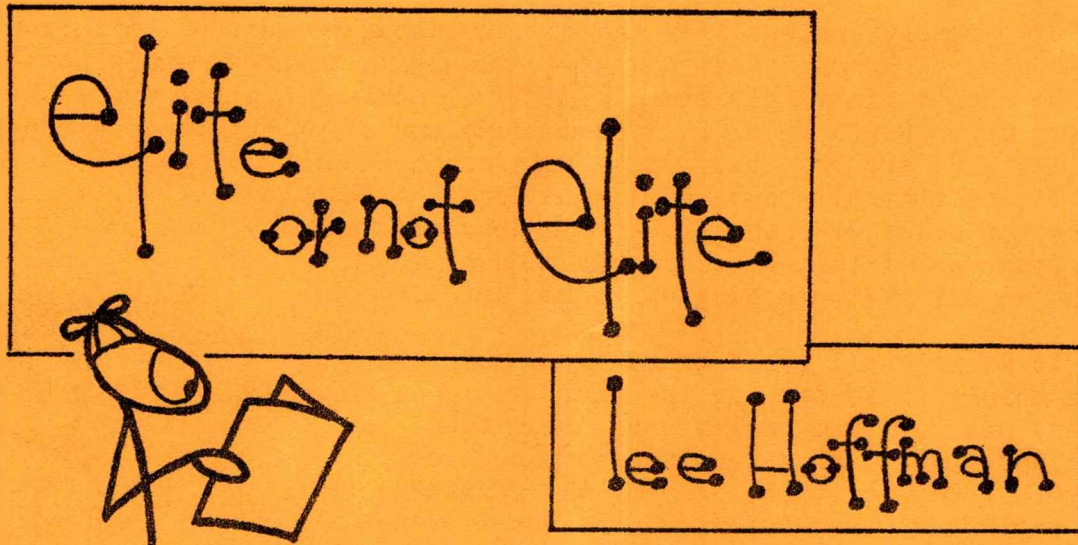 elite
or not elite
lee Hoffman